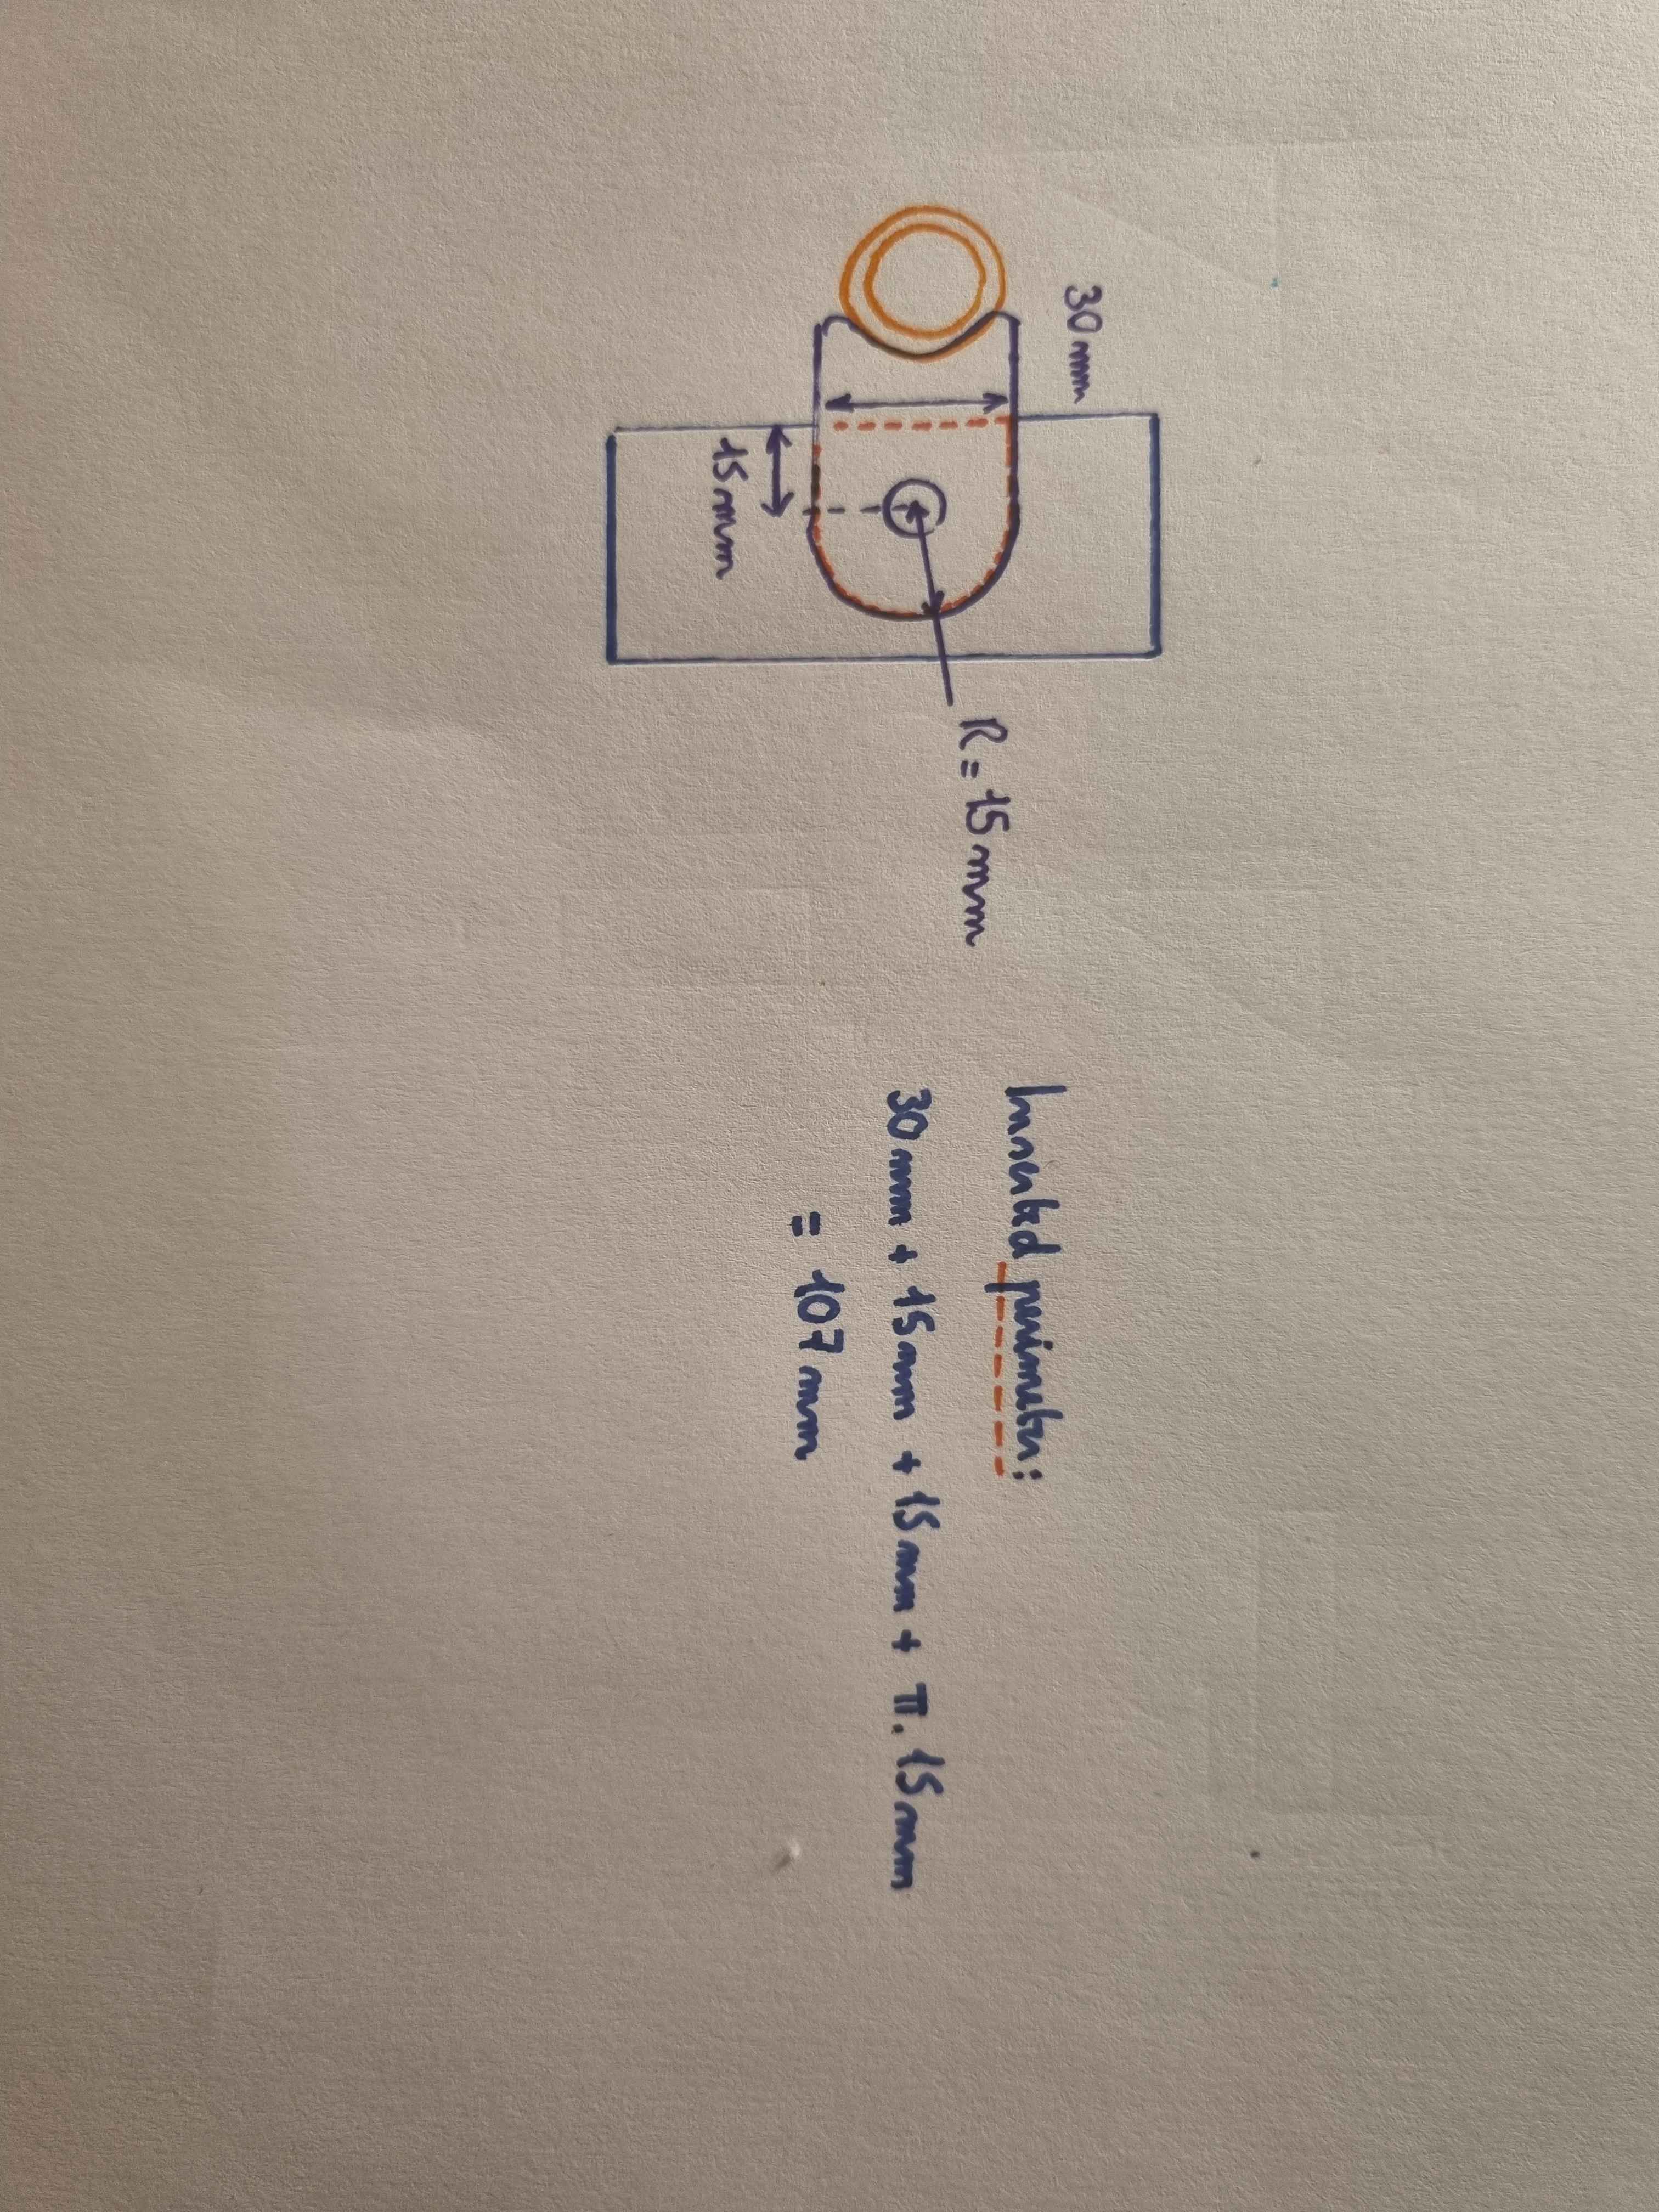 30mm
15mm
R = 15mm
Inserted perimeter:
30mm + 15mm + 15mm + π . 15mm
= 107mm